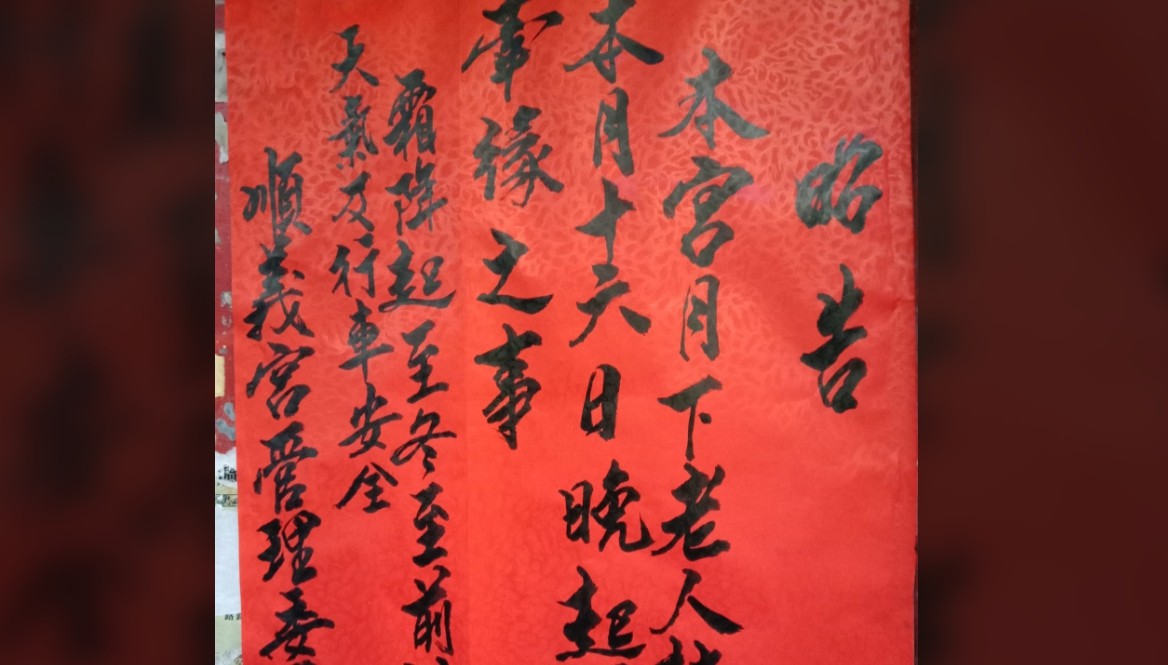 昭告
本宮月下老人
本月十六日晚起
牽緣之事
霜降起至冬至前
天氣及行車安全
順義宮管理委